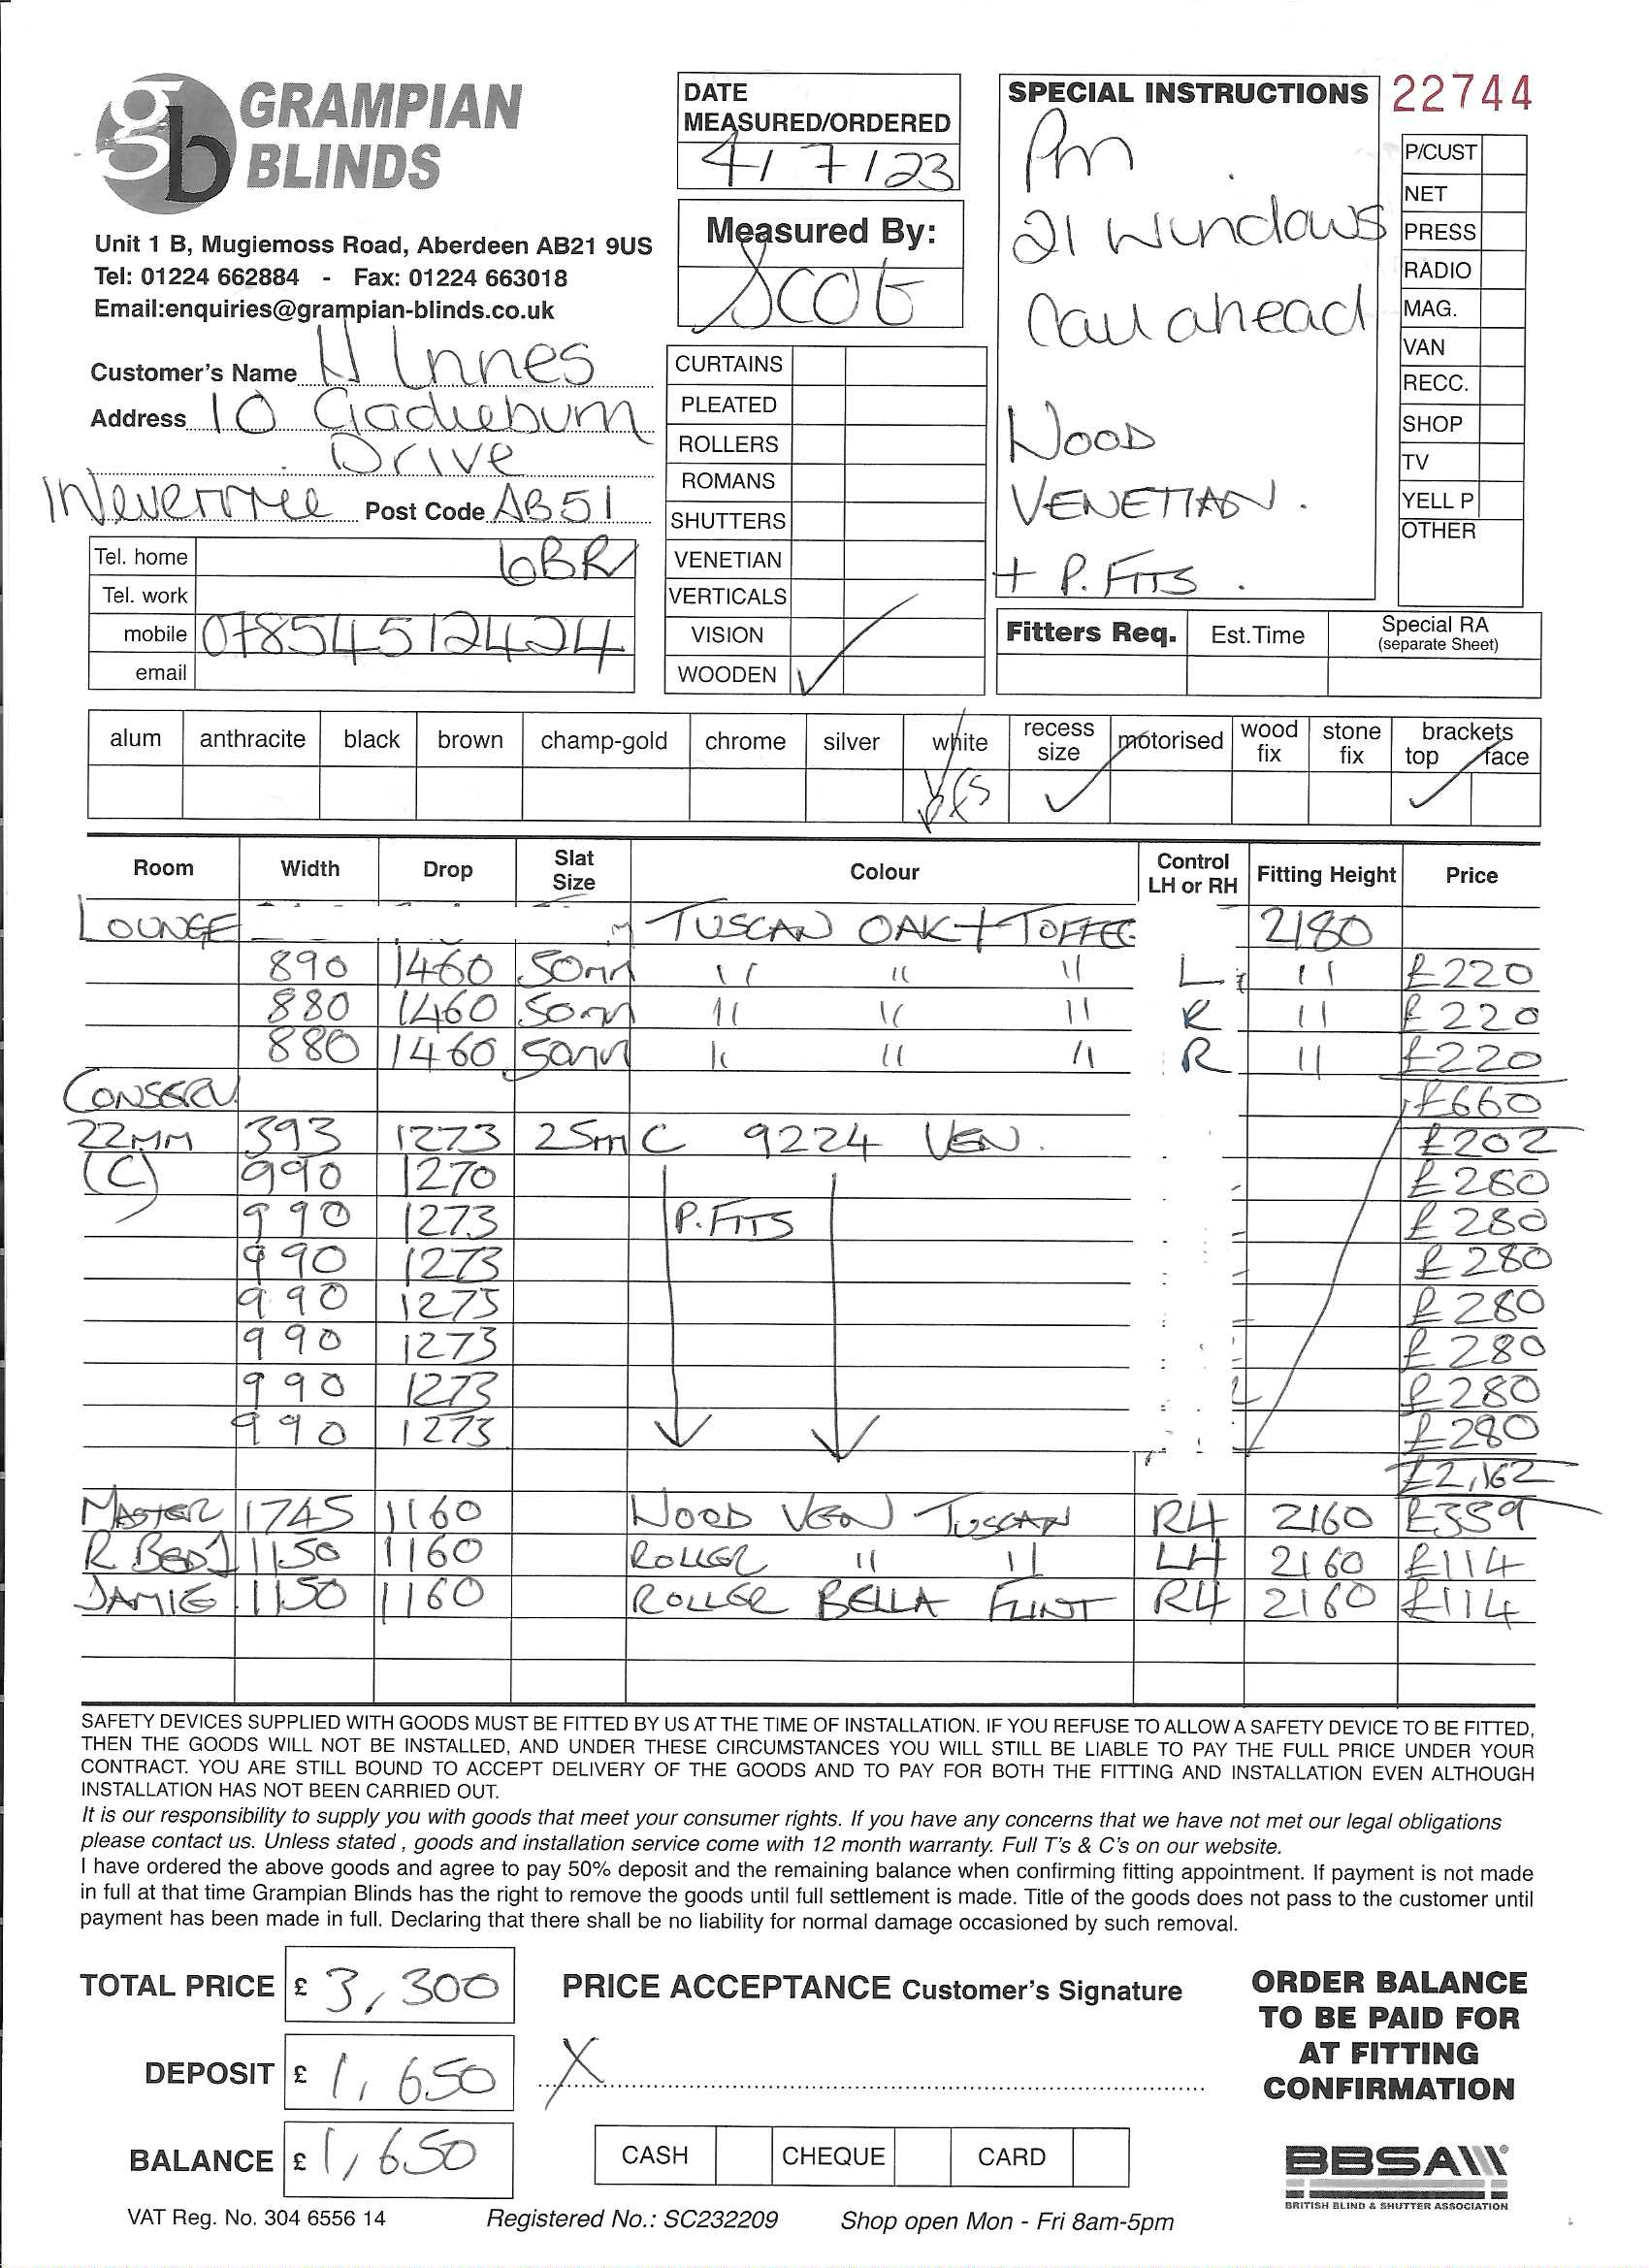 GRAMPIAN
BLINDS
Unit 1 B, Mugiemoss Road, Aberdeen AB21 9US
Tel: 01224 662884 - Fax: 01224 663018
Email:enquiries@grampian-blinds.co.uk
DATE
MEASURED/ORDERED
4/7/23
Measured By:
Scot
SPECIAL INSTRUCTIONS
22744
Pm
21 windows
Call ahead
WOOD
VENETIAN.
+ P. FITS.
P/CUST
NET
PRESS
RADIO
MAG.
VAN
RECC.
SHOP
TV
YELL P
OTHER
Customer's Name Innes
Address 10
Drive
Post Code AB51
6BR
Tel. home
Tel. work
mobile 07854512424
email
CURTAINS
PLEATED
ROLLERS
ROMANS
SHUTTERS
VENETIAN
VERTICALS
VISION
WOODEN ✓
Fitters Req. Est.Time Special RA
(separate Sheet)
alum anthracite black brown champ-gold chrome silver white recess size motorised wood fix stone fix brackets top face
✓ ✓
Room Width Drop Slat Size Colour Control LH or RH Fitting Height Price
LOUNGE TUSCAN OAK + TOFFEE 2180
890 1460 50mm " " " L " £220
880 1460 50mm " " " R " £220
880 1460 50mm " " " R " £220
CONSERV £660
22MM 393 1273 25m C 9224 VEN. £202
(C) 990 1270 £280
990 1273 P. FITS £280
990 1273 £280
990 1273 £280
990 1273 £280
990 1273 £280
990 1273 £280
£2,162
MASTER 1745 1160 WOOD VEN TUSCAN RH 2160 £359
R BED 1 1150 1160 ROLLER " " LH 2160 £114
JAMIE 1150 1160 ROLLER BELLA FLINT RH 2160 £114
SAFETY DEVICES SUPPLIED WITH GOODS MUST BE FITTED BY US AT THE TIME OF INSTALLATION. IF YOU REFUSE TO ALLOW A SAFETY DEVICE TO BE FITTED,
THEN THE GOODS WILL NOT BE INSTALLED, AND UNDER THESE CIRCUMSTANCES YOU WILL STILL BE LIABLE TO PAY THE FULL PRICE UNDER YOUR
CONTRACT. YOU ARE STILL BOUND TO ACCEPT DELIVERY OF THE GOODS AND TO PAY FOR BOTH THE FITTING AND INSTALLATION EVEN ALTHOUGH
INSTALLATION HAS NOT BEEN CARRIED OUT.
It is our responsibility to supply you with goods that meet your consumer rights. If you have any concerns that we have not met our legal obligations
please contact us. Unless stated , goods and installation service come with 12 month warranty. Full T's & C's on our website.
I have ordered the above goods and agree to pay 50% deposit and the remaining balance when confirming fitting appointment. If payment is not made
in full at that time Grampian Blinds has the right to remove the goods until full settlement is made. Title of the goods does not pass to the customer until
payment has been made in full. Declaring that there shall be no liability for normal damage occasioned by such removal.
TOTAL PRICE £ 3,300
DEPOSIT £ 1,650
BALANCE £ 1,650
PRICE ACCEPTANCE Customer's Signature
X
CASH CHEQUE CARD
ORDER BALANCE
TO BE PAID FOR
AT FITTING
CONFIRMATION
BBSA
BRITISH BLIND & SHUTTER ASSOCIATION
VAT Reg. No. 304 6556 14 Registered No.: SC232209 Shop open Mon - Fri 8am-5pm